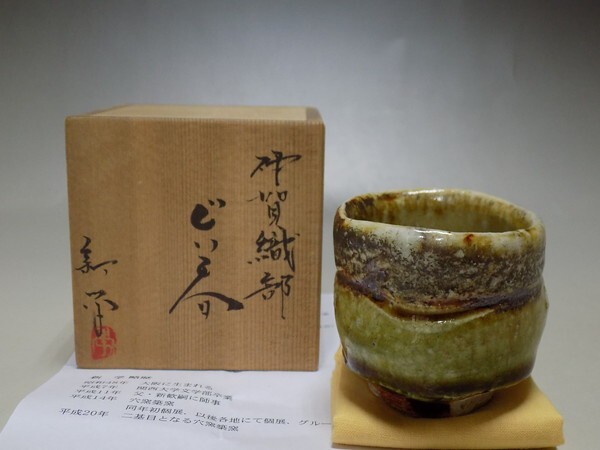 伊賀織部
ぐい呑
新 学
新 学 略歴
昭和48年 大阪に生まれる
平成7年 関西大学文学部卒業
平成11年 父・新歓嗣に師事
平成14年 穴窯築窯
同年初個展、以後各地にて個展、グルー
平成20年 二基目となる穴窯築窯